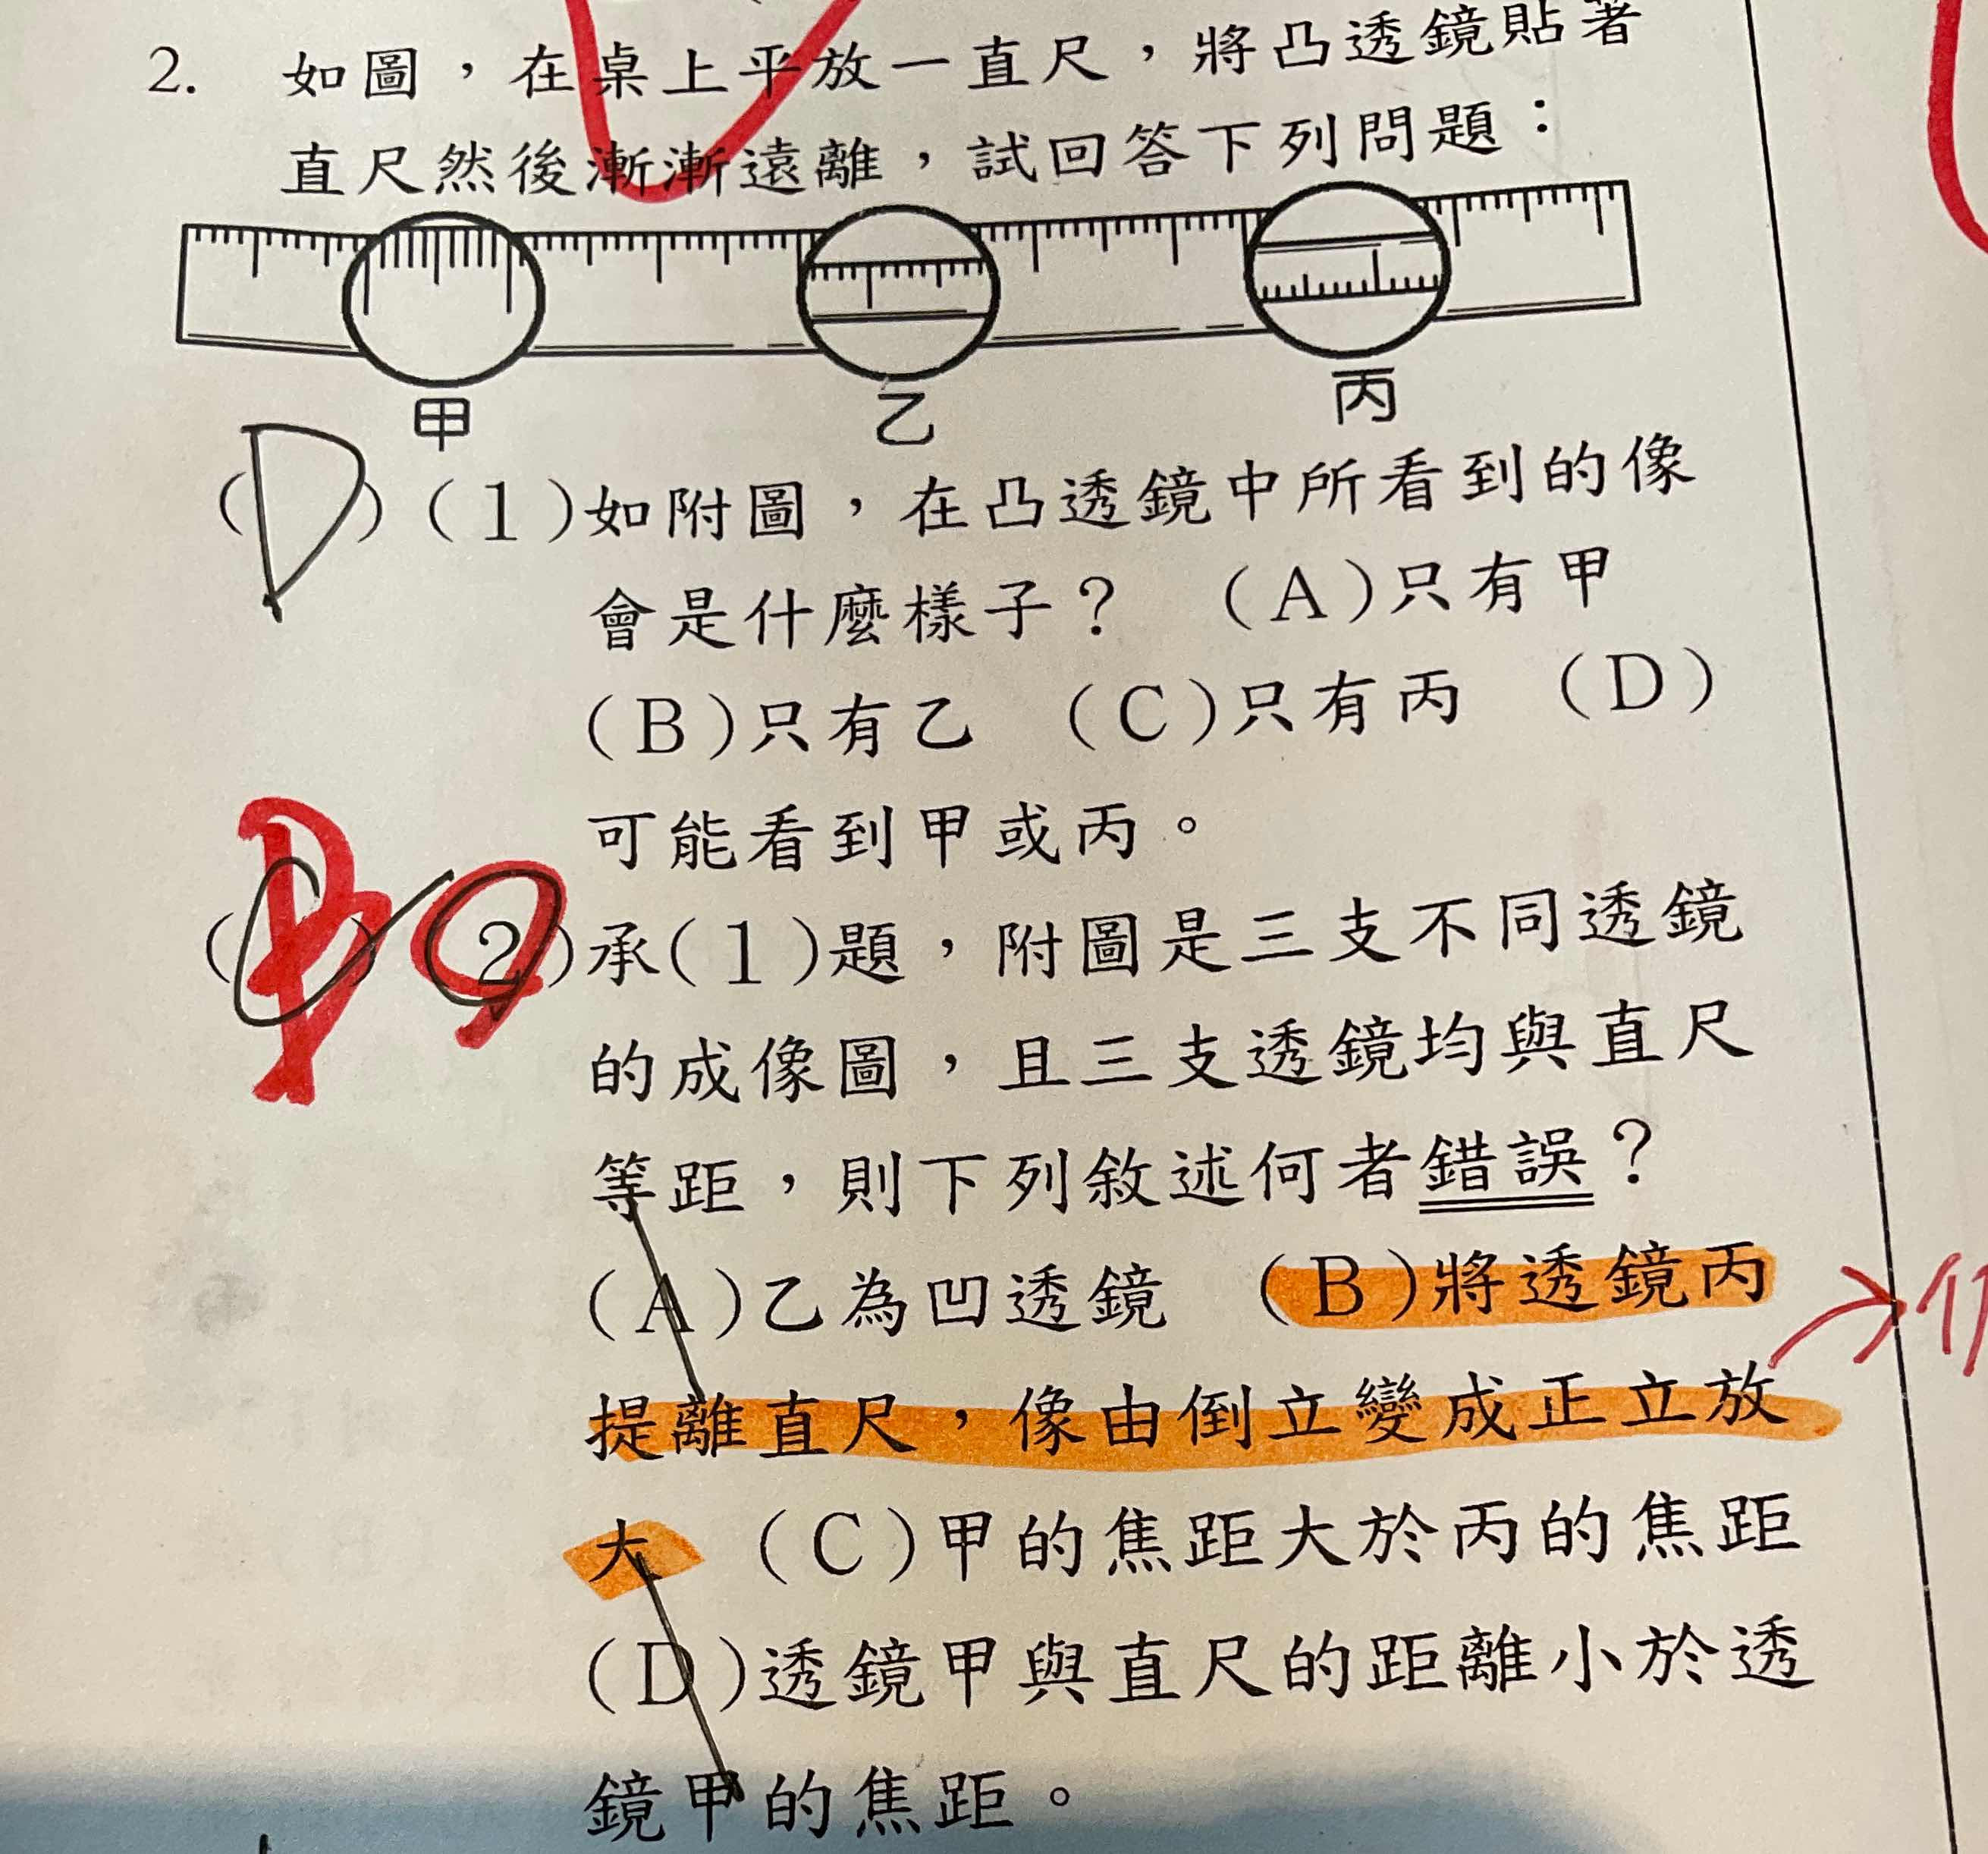 2. 如圖，在桌上平放一直尺，將凸透鏡貼著
直尺然後漸漸遠離，試回答下列問題：
甲 乙 丙
(D)(1)如附圖，在凸透鏡中所看到的像
會是什麼樣子？ (A)只有甲
(B)只有乙 (C)只有丙 (D)
可能看到甲或丙。
(B)(2)承(1)題，附圖是三支不同透鏡
的成像圖，且三支透鏡均與直尺
等距，則下列敘述何者錯誤？
(A)乙為凹透鏡 (B)將透鏡丙
提離直尺，像由倒立變成正立放
大 (C)甲的焦距大於丙的焦距
(D)透鏡甲與直尺的距離小於透
鏡甲的焦距。